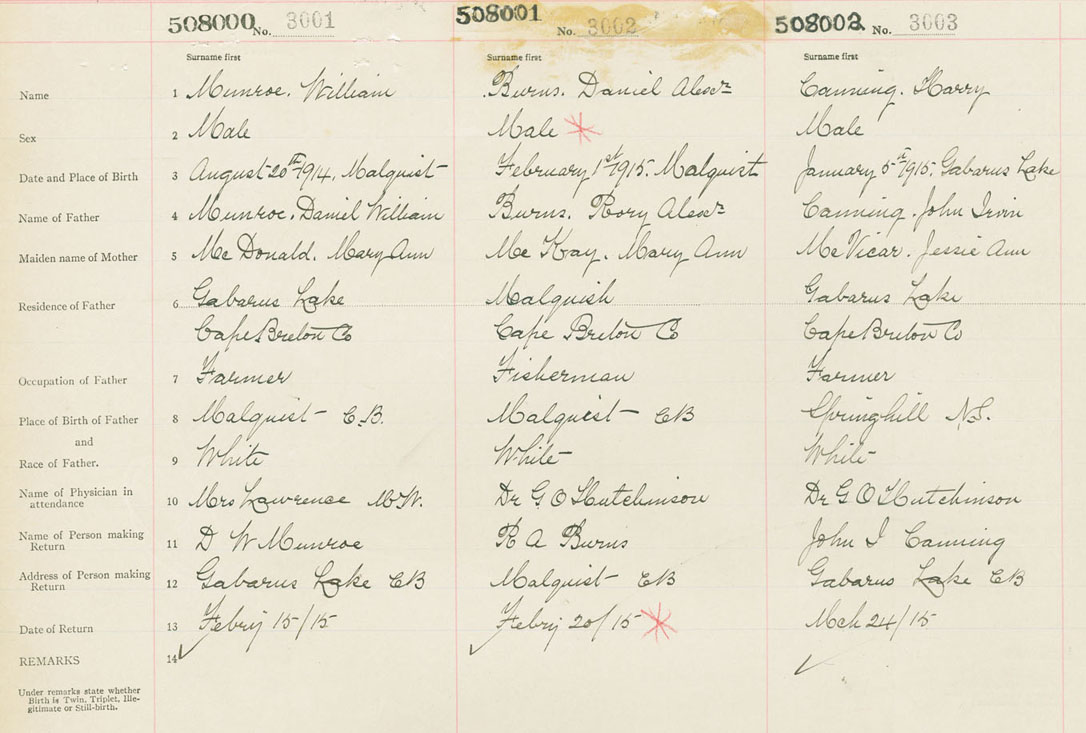 508000 No. 3001 508001 No. 3002 508002 No. 3003
Surname first Surname first Surname first
Name 1 Munroe. William Burns. Daniel Alexr Canning. Harry
Sex 2 Male Male Male
Date and Place of Birth 3 August 20th 1914, Malquist February 1st 1915. Malquist January 5th 1915. Gabarus Lake
Name of Father 4 Munroe. Daniel William Burns. Rory Alexr Canning. John Irvin
Maiden name of Mother 5 Mc Donald. Mary Ann Mc Kay. Mary Ann Mc Vicar. Jessie Ann
Residence of Father 6 Gabarus Lake Malquish Gabarus Lake
Cape Breton Co Cape Breton Co Cape Breton Co
Occupation of Father 7 Farmer Fisherman Farmer
Place of Birth of Father 8 Malquist C.B. Malquist CB Springhill N.S.
and
Race of Father. 9 White White White
Name of Physician in
attendance 10 Mrs Lawrence M.W. Dr G. O Hutchinson Dr G O Hutchinson
Name of Person making
Return 11 D W Munroe R A Burns John I Canning
Address of Person making
Return 12 Gabarus Lake CB Malquist CB Gabarus Lake CB
Date of Return 13 Febry 15/15 Febry 20/15 Mch 24/15
REMARKS 14
Under remarks state whether
Birth is Twin, Triplet, Ille-
gitimate or Still-birth.